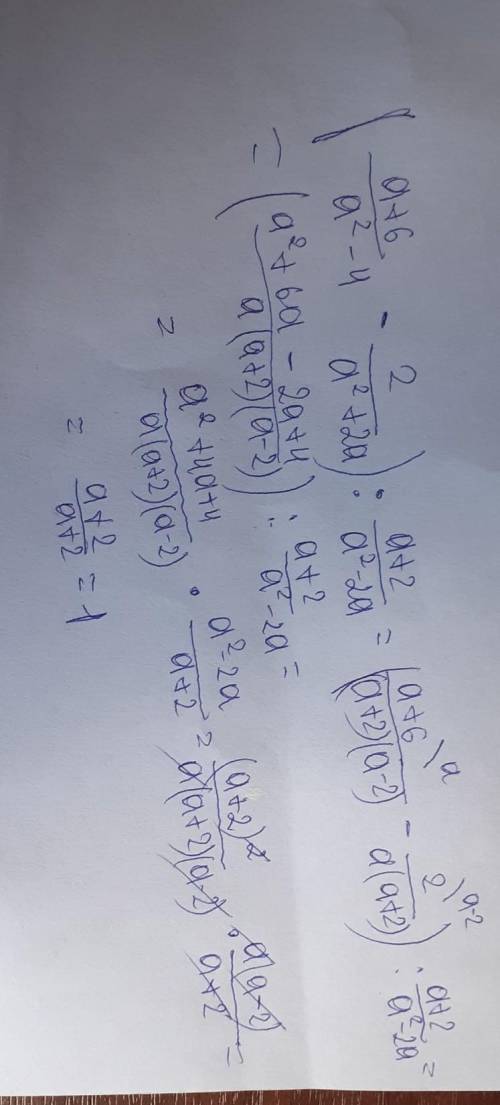 ( (a+6)/(a²-4) - 2/(a²+2a) ) : (a+2)/(a²-2a) = ( (a+6)\a/((a+2)(a-2)) - 2\a-2/(a(a+2)) ) : (a+2)/(a²-2a) =
= ( (a²+6a-2a+4)/(a(a+2)(a-2)) ) : (a+2)/(a²-2a) =
= (a²+4a+4)/(a(a+2)(a-2)) · (a²-2a)/(a+2) = (a+2)²/(a(a+2)(a-2)) · a(a-2)/(a+2) =
= (a+2)/(a+2) = 1